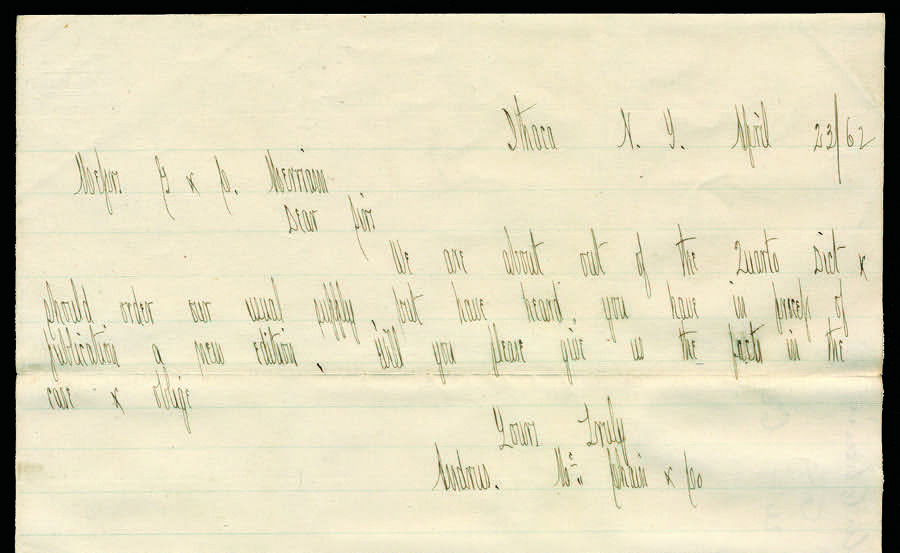 Ithaca N. Y. April 23/62
Messrs. G & C. Merriam
Dear Sirs
We are about out of the Quarto Dict &
should order our usual supply but have heard you have in process of
publication a new edition, Will you please give us the facts in the
case & oblige
Yours Truly
Andrus. Mc Chain & Co